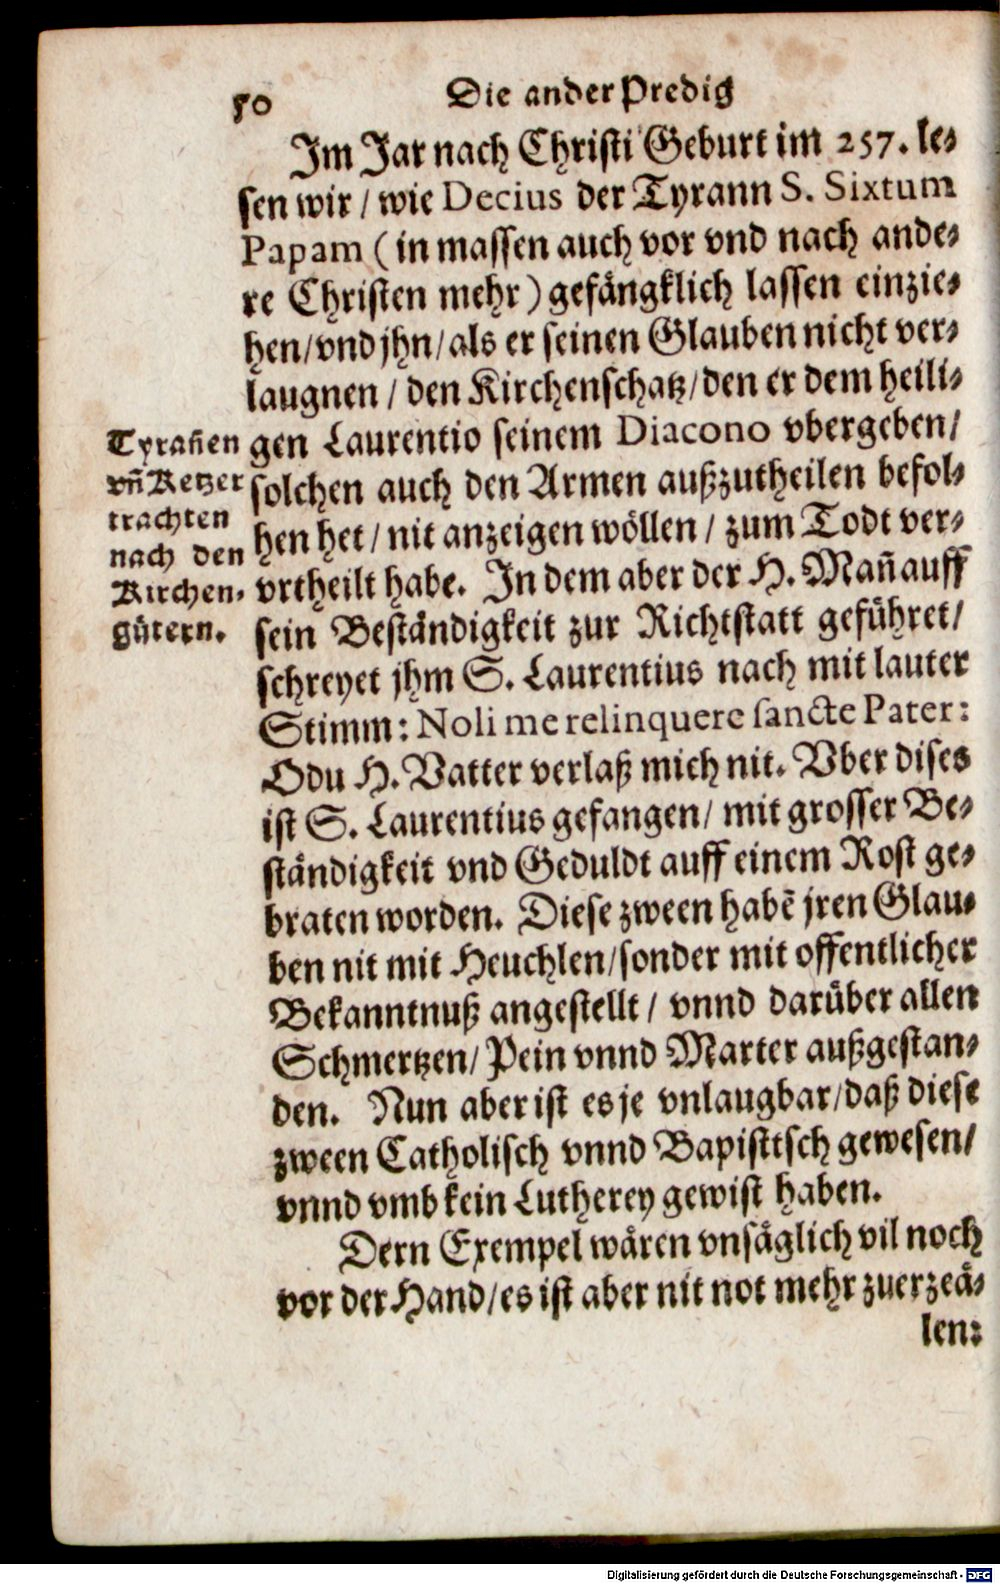 50
Die ander Predig
Im Jar nach Christi Geburt im 257. le-
sen wir / wie Decius der Tyrann S. Sixtum
Papam ( in massen auch vor vnd nach ande-
re Christen mehr ) gefängklich lassen einzie-
hen / vnd jhn / als er seinen Glauben nicht ver-
laugnen / den Kirchenschatz / den er dem heili-
gen Laurentio seinem Diacono vbergeben /
solchen auch den Armen außzutheilen befol-
hen het / nit anzeigen wöllen / zum Todt ver-
vrtheilt habe. In dem aber der H. Mañ auff
sein Beständigkeit zur Richtstatt geführet /
schreyet jhm S. Laurentius nach mit lauter
Stimm : Noli me relinquere sancte Pater :
O du H. Vatter verlaß mich nit. Vber dises
ist S. Laurentius gefangen / mit grosser Be-
ständigkeit vnd Geduldt auff einem Rost ge-
braten worden. Diese zween habē jren Glau-
ben nit mit Heuchlen / sonder mit offentlicher
Bekanntnuß angestellt / vnnd darüber allen
Schmertzen / Pein vnnd Marter außgestan-
den. Nun aber ist es je vnlaugbar / daß diese
zween Catholisch vnnd Bapistisch gewesen /
vnnd vmb kein Lutherey gewist haben.
Dern Exempel wären vnsäglich vil noch
vor der Hand / es ist aber nit not mehr zuerzeä-
len:
Tyrañen
vñ Ketzer
trachten
nach den
Kirchen-
gütern.
Digitalisierung gefördert durch die Deutsche Forschungsgemeinschaft - DFG